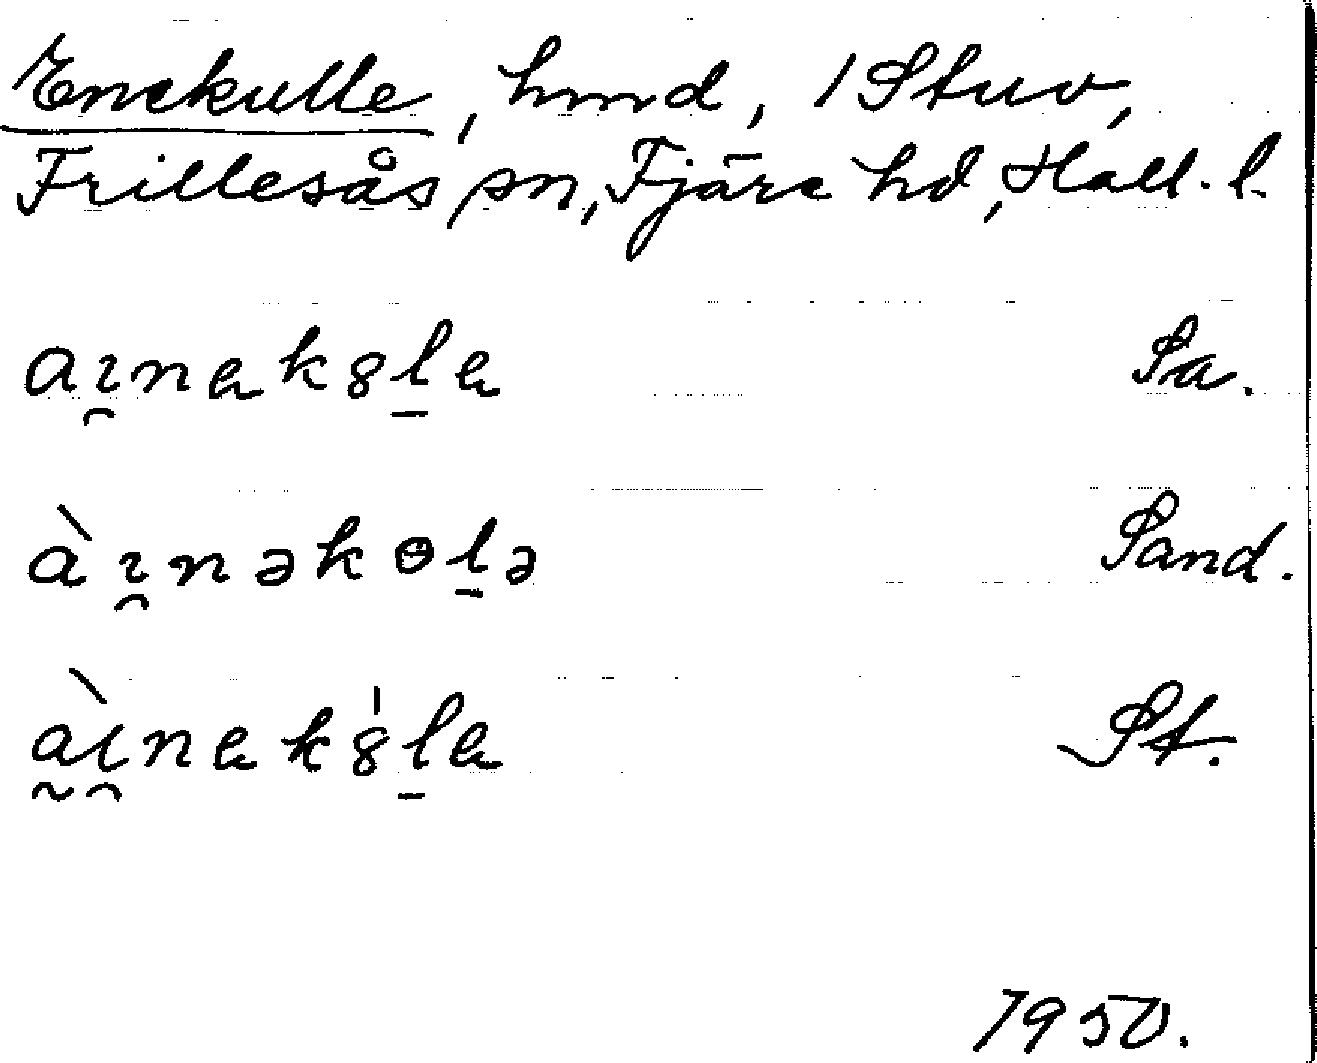 Enekulle, hmd, 1 Stuv,
Frillesås sn, Fjäre hd, Hall. l.
aı̯nek8l̠e Sa.
àı̯nəkɵl̠ə Sand.
a̰ı̯̀nekˈ8l̠e St.
1950.